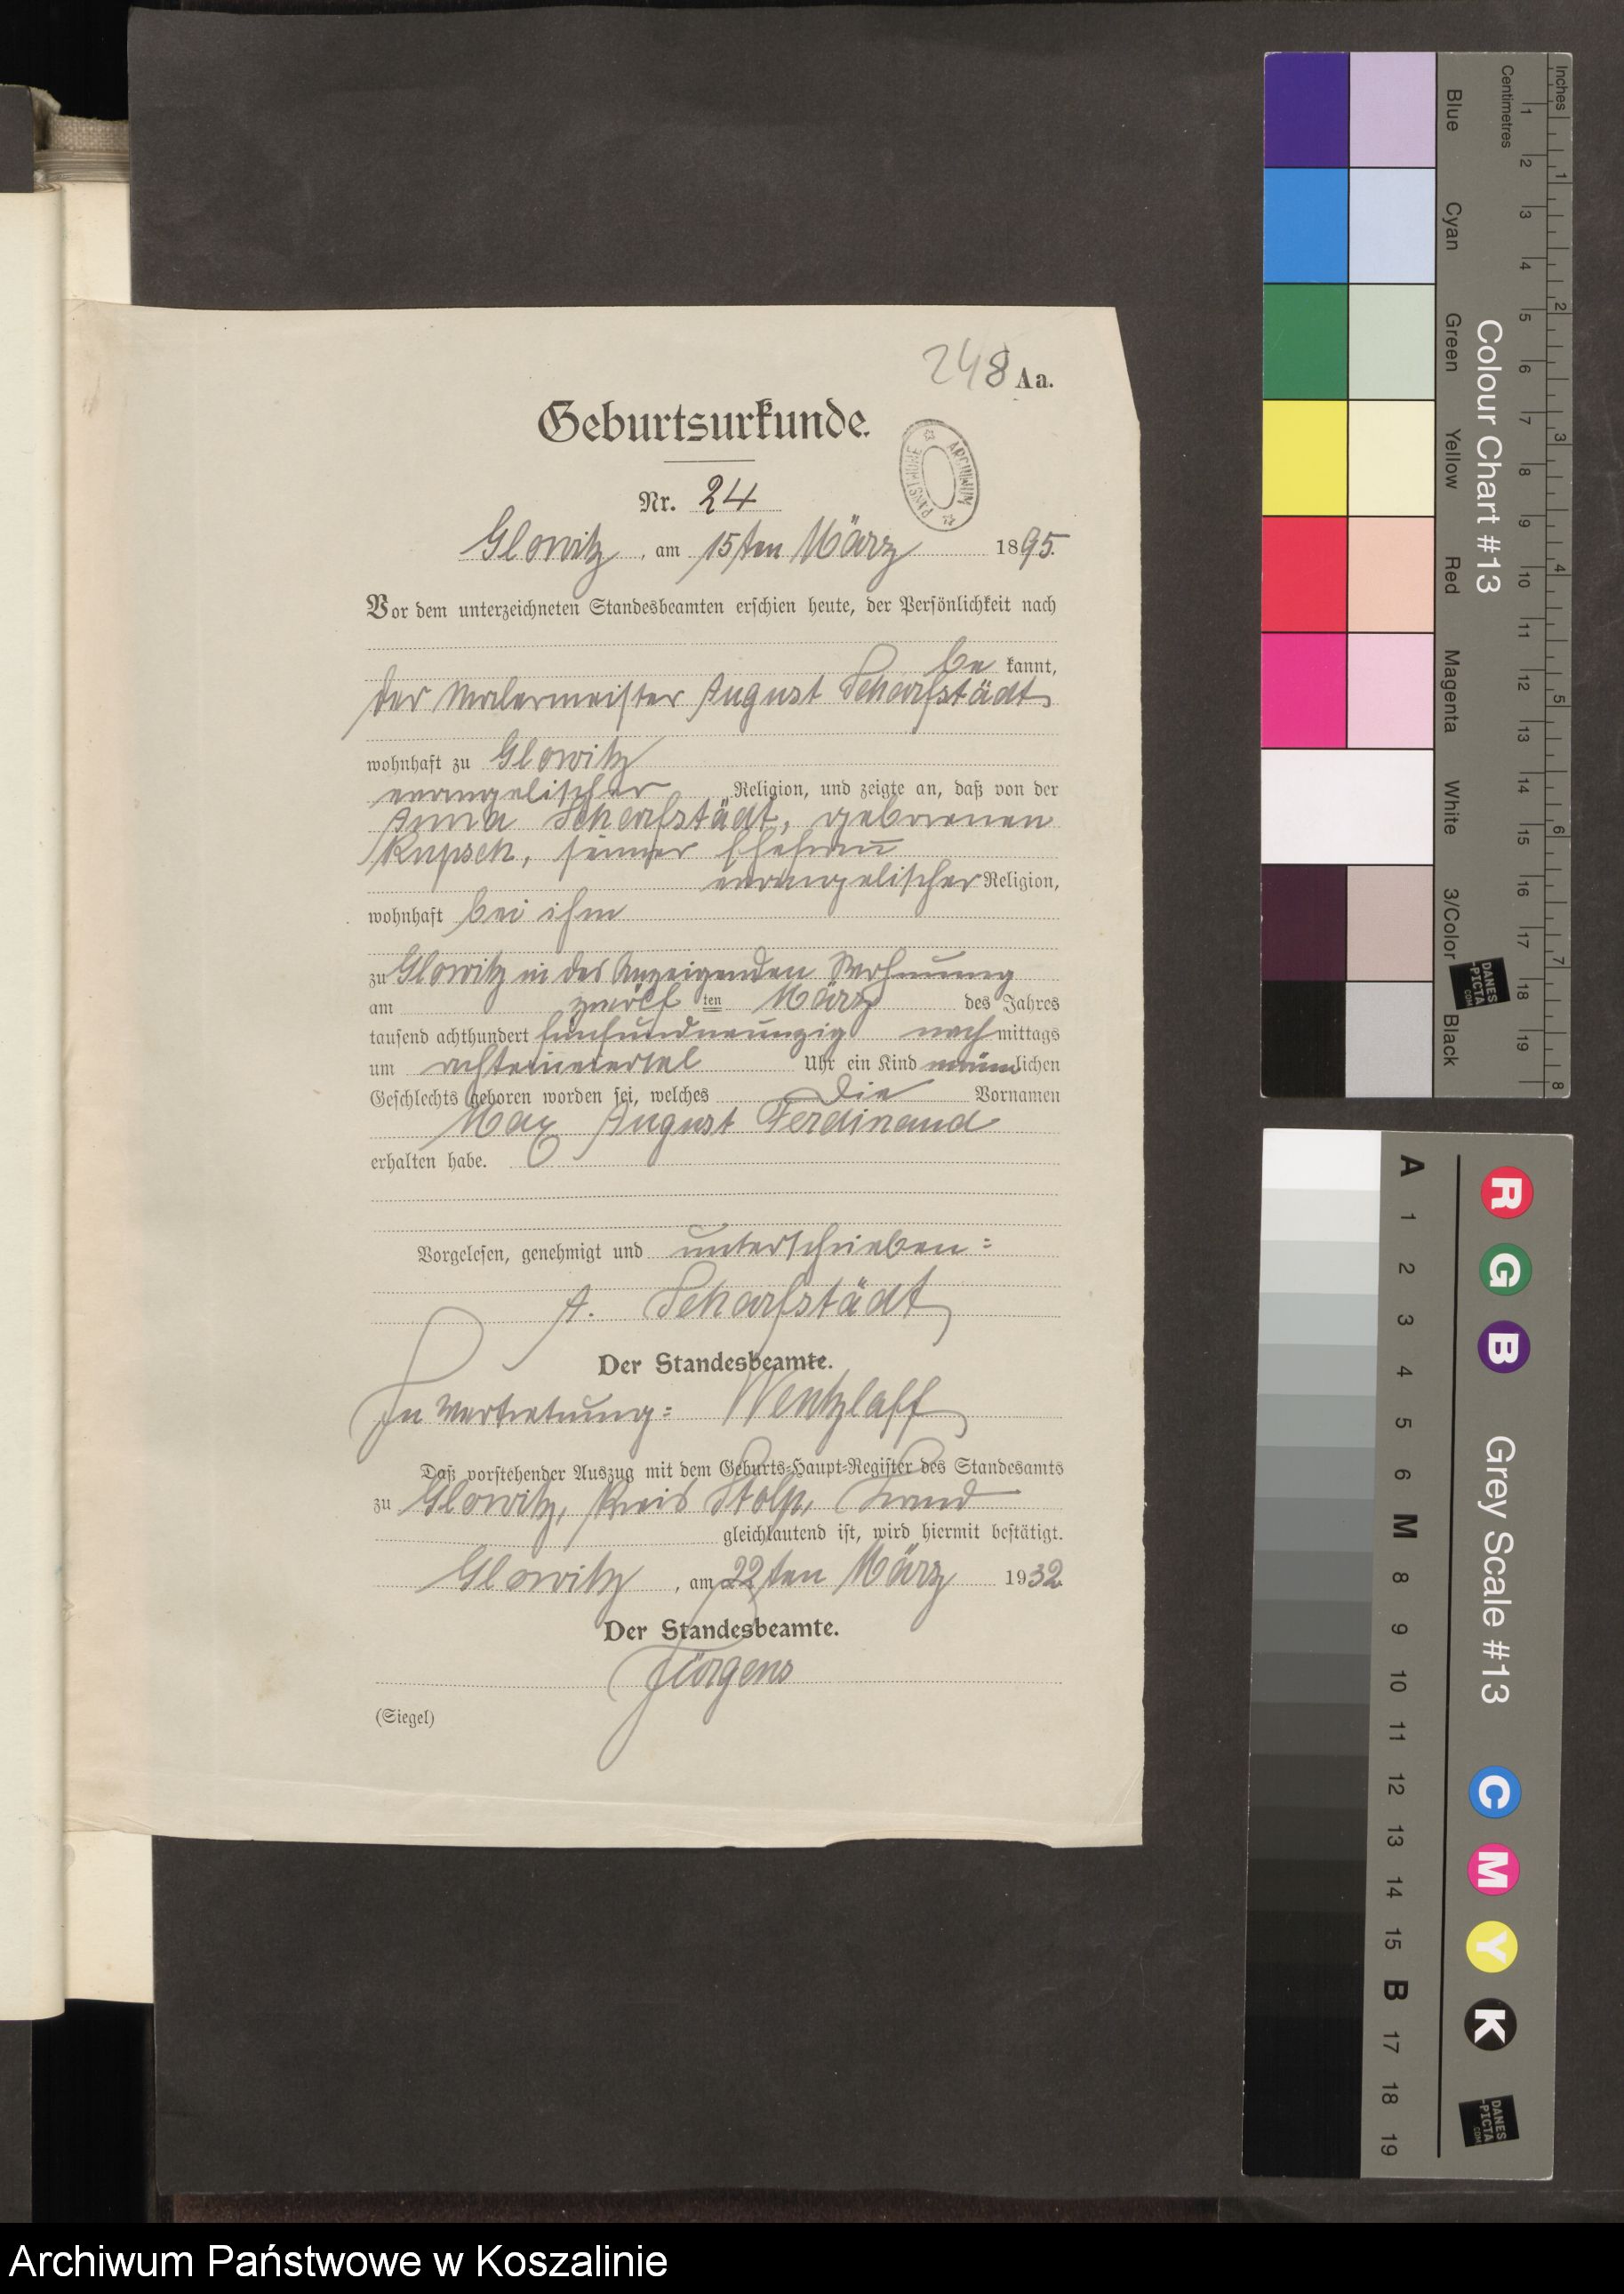 248 Aa.
Geburtsurkunde.
ARCHIWUM PAŃSTWOWE
Nr. 24
Glowitz, am 15ten März 1895.
Vor dem unterzeichneten Standesbeamten erschien heute, der Persönlichkeit nach
be kannt,
der Malermeister August Scharfstädt,
wohnhaft zu Glowitz
evangelischer Religion, und zeigte an, daß von der
Anna Scharfstädt, geborenen
Kupsch, seiner Ehefrau
evangelischer Religion,
wohnhaft bei ihm
zu Glowitz in des Anzeigenden Wohnung
am zwölf ten März des Jahres
tausend achthundert fünfundneunzig nach mittags
um Uhr ein Kind männlichen
Geschlechts geboren worden sei, welches die Vornamen
Max August Ferdinand
erhalten habe.
Vorgelesen, genehmigt und unterschrieben:
A. Scharfstädt
Der Standesbeamte.
In Vertretung: Wentzlaff
Daß vorstehender Auszug mit dem Geburts-Haupt-Register des Standesamts
zu Glowitz, Kreis Stolp, Land
gleichlautend ist, wird hiermit bestätigt.
Glowitz, am 22ten März 1932
Der Standesbeamte.
Jürgens
(Siegel)
Inches
Centimetres
1 2 3 4 5 6 7 8 9 10 11 12 13 14 15 16 17 18 19
1 2 3 4 5 6 7 8
Colour Chart #13
Blue
Cyan
Green
Yellow
Red
Magenta
White
3/Color
Black
DANES
-PICTA
.COM
A 1 2 3 4 5 6 M 8 9 10 11 12 13 14 15 B 17 18 19
R G B
Grey Scale #13
C M Y K
DANES
-PICTA
.COM
Archiwum Państwowe w Koszalinie